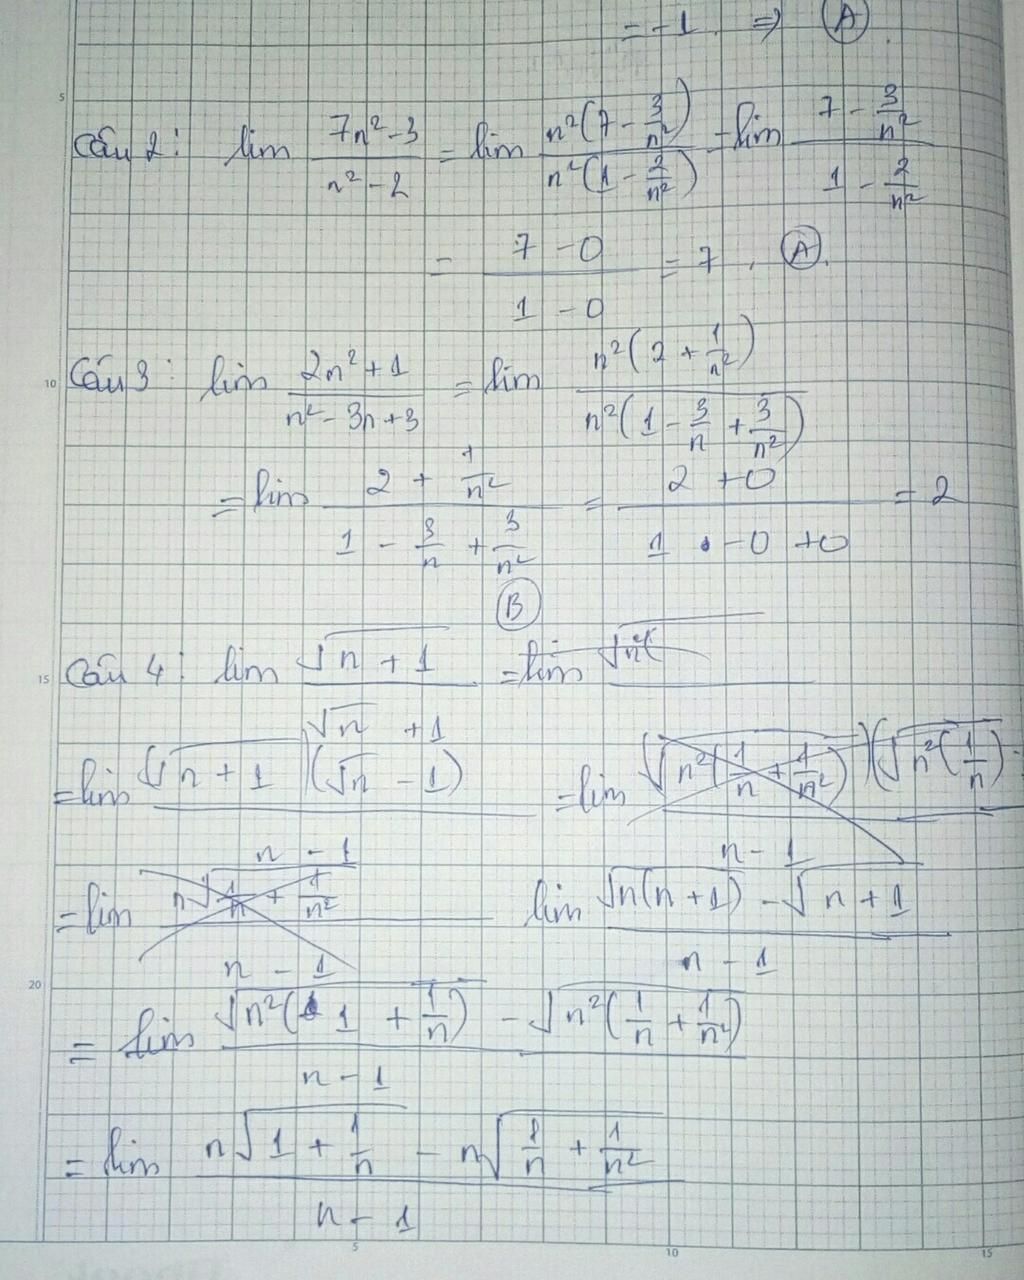 = -1 ⇒ (A).
Câu 2: lim (7n² - 3)/(n² - 2) = lim (n²(7 - 3/n²))/(n²(1 - 2/n²)) = lim (7 - 3/n²)/(1 - 2/n²)
= (7 - 0)/(1 - 0) = 7. (A).
Câu 3: lim (2n² + 1)/(n² - 3n + 3) = lim (n²(2 + 1/n²))/(n²(1 - 3/n + 3/n²))
= lim (2 + 1/n²)/(1 - 3/n + 3/n²) = (2 + 0)/(1 - 0 + 0) = 2
(B)
Câu 4: lim (√(n + 1))/(√n + 1) = lim
= lim ((√(n + 1))(√n - 1))/(n - 1) = lim ((√(n²(1/n + 1/n²)))(√(n²(1/n)) -/(n - 1)
= lim (n√(1/n + 1/n²))/(n - 1) lim (√(n(n + 1)) - √(n + 1))/(n - 1)
= lim (√(n²(1 + 1/n)) - √(n²(1/n + 1/n²)))/(n - 1)
= lim (n√(1 + 1/n) - n√(1/n + 1/n²))/(n - 1)
5
10
15
20
5
10
15